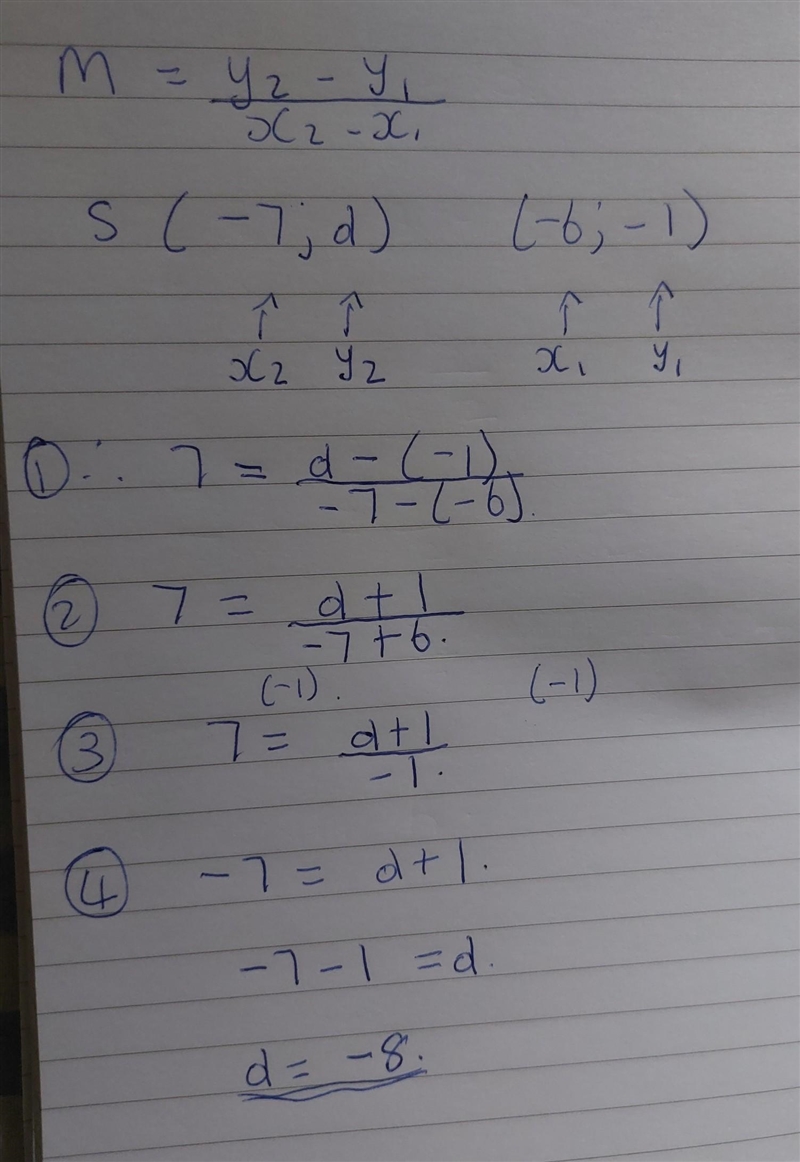 M = y₂ - y₁ / x₂ - x₁
S (-7; d) (-6; -1)
↑ ↑ ↑ ↑
x₂ y₂ x₁ y₁
① ∴ 7 = d - (-1) / -7 - (-6).
② 7 = d + 1 / -7 + 6.
(-1). (-1)
③ 7 = d + 1 / -1.
④ -7 = d + 1.
-7 - 1 = d.
d = -8.